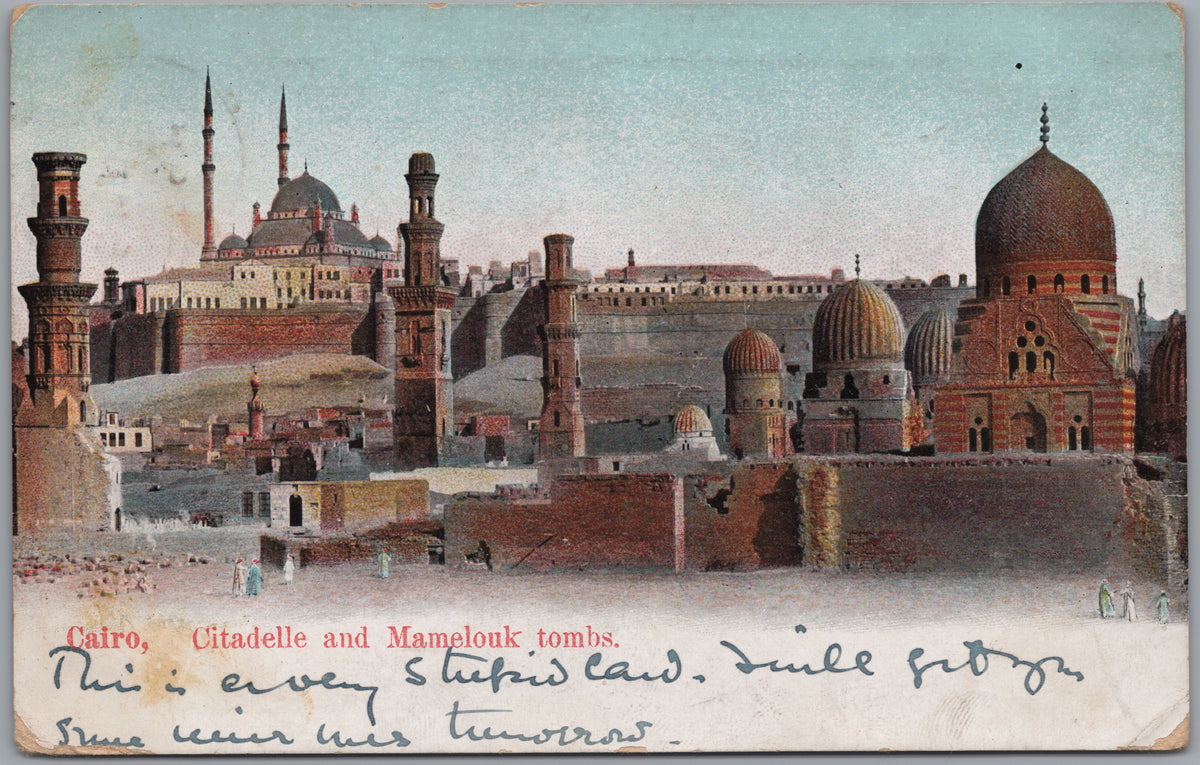 Cairo, Citadelle and Mamelouk tombs.
This is a very stupid card. I will get you
some nicer ones tomorrow.